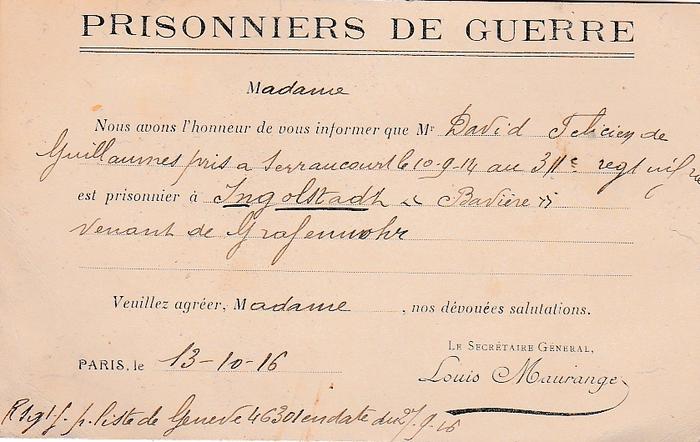 PRISONNIERS DE GUERRE
Madame
Nous avons l'honneur de vous informer que Mr David Felicien de
Guillaumes pris a Serraucourt le 10-9-14 au 311e regt inf
est prisonnier à Ingolstadt Bavière
venant de Grafenwohr
Veuillez agréer, Madame, nos dévouées salutations.
LE SECRÉTAIRE GÉNÉRAL,
PARIS, le 13-10-16
Louis Maurange
p. liste de Geneve 46301 en date du 27.9.16